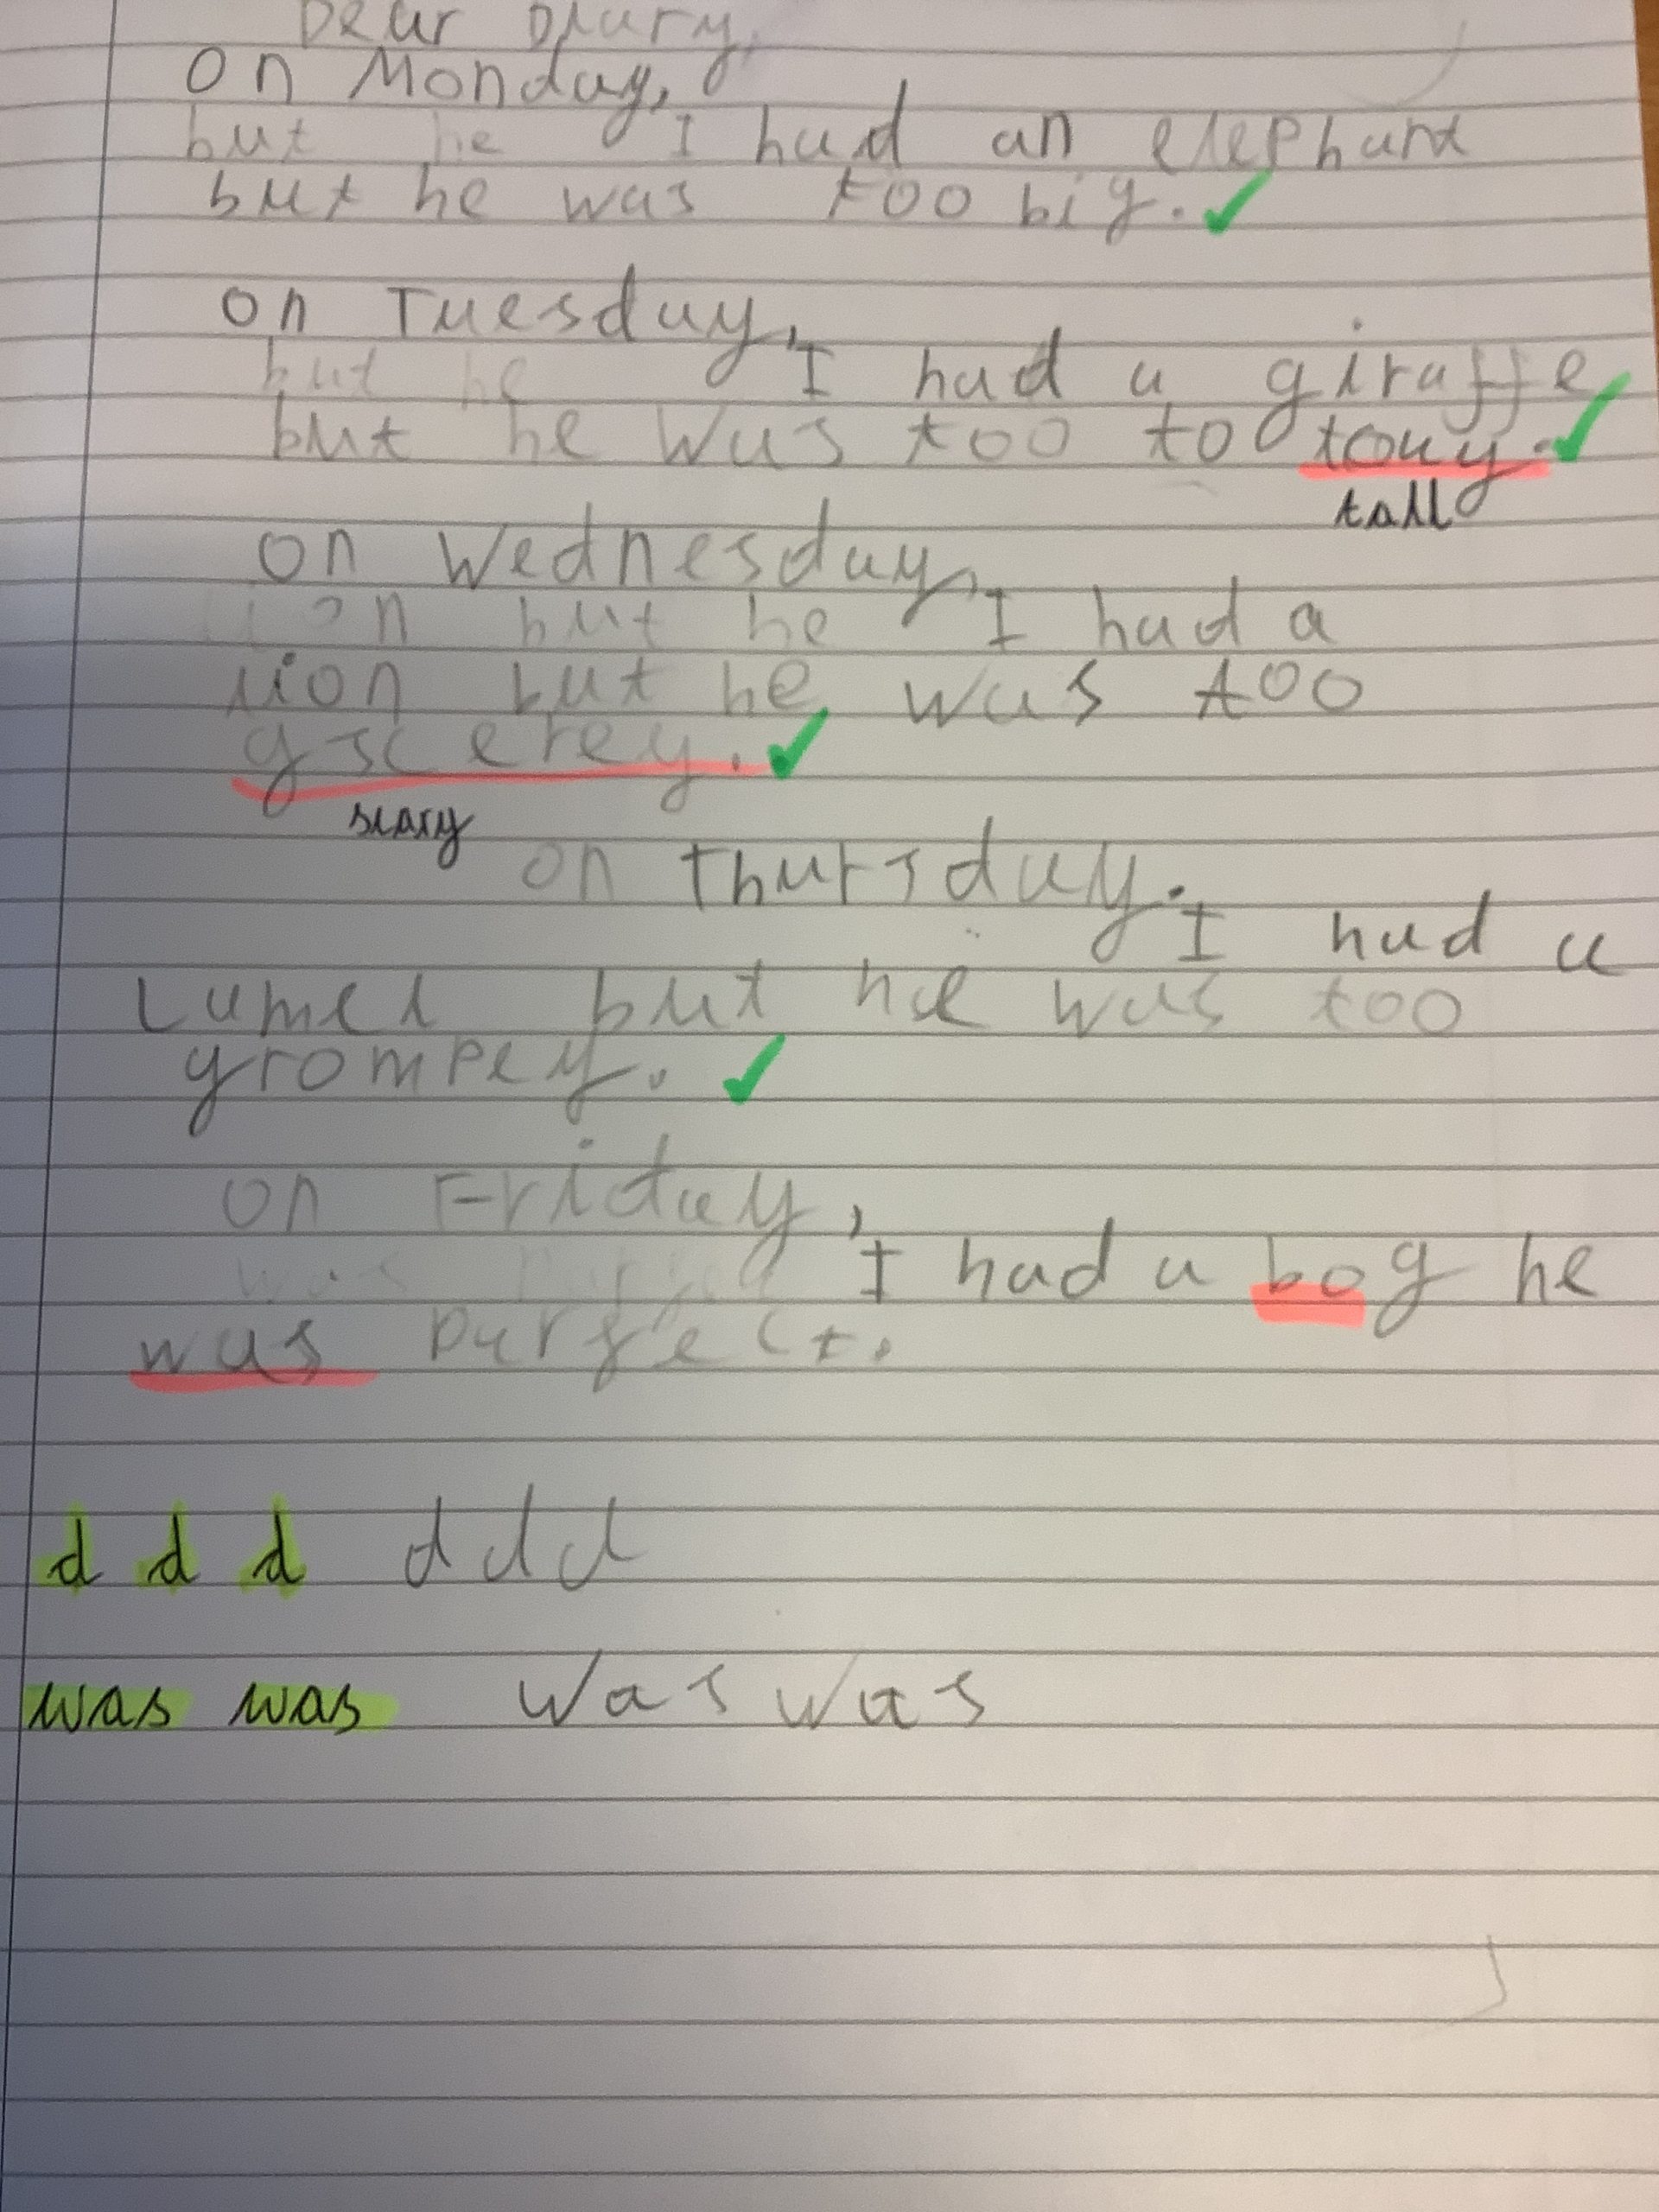 Dear Diary,
On Monday,
but he I had an elephant
but he was too big.
on Tuesday,
but he I had a giraffe
but he was too to touy.
tall
on Wednesday,
lion but he I had a
lion but he was too
gscerey.
scary
on Thursday. I had a
camel but he was too
grompey.
on Friday,
I had a bog he
was purfect.
d d d d d d
was was was was